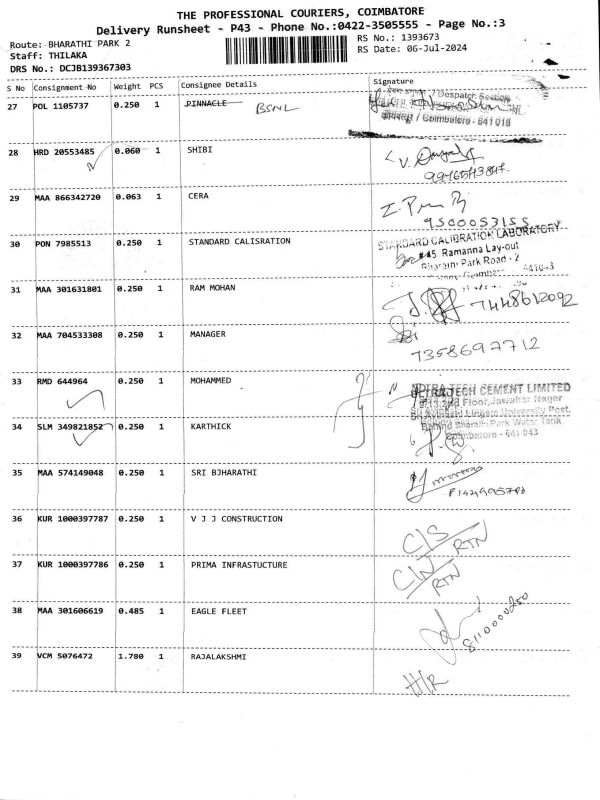 THE PROFESSIONAL COURIERS, COIMBATORE
Delivery Runsheet - P43 - Phone No.:0422-3505555 - Page No.:3
Route: BHARATHI PARK 2
RS No.: 1393673
Staff: THILAKA
RS Date: 06-Jul-2024
DRS No.: DCJB139367303
S No Consignment No Weight PCS Consignee Details Signature
27 POL 1105737 0.250 1 PINNACLE BSNL
/ Despatch Section
/ Coimbatore - 641 018
28 HRD 20553485 0.060 1 SHIBI
29 MAA 866342720 0.063 1 CERA
9500053155
30 PON 7985513 0.250 1 STANDARD CALISRATION STANDARD CALIBRATION LABORATORY
#45 Ramanna Lay-out
Bharathi Park Road - 2
31 MAA 301631801 0.250 1 RAM MOHAN
7448612092
32 MAA 704533308 0.250 1 MANAGER
7358697712
33 RMD 644964 0.250 1 MOHAMMED ULTRATECH CEMENT LIMITED
Floor, Jawahar Nagar
Lingam University Post,
Behind Bharathi Park Water Tank
34 SLM 349821852 0.250 1 KARTHICK
Coimbatore - 641 043
35 MAA 574149048 0.250 1 SRI BJHARATHI
36 KUR 1000397787 0.250 1 V J J CONSTRUCTION
C/S RTN
37 KUR 1000397786 0.250 1 PRIMA INFRASTUCTURE
C/N RTN
38 MAA 301606619 0.485 1 EAGLE FLEET
8110000250
39 VCM 5076472 1.780 1 RAJALAKSHMI
H/R